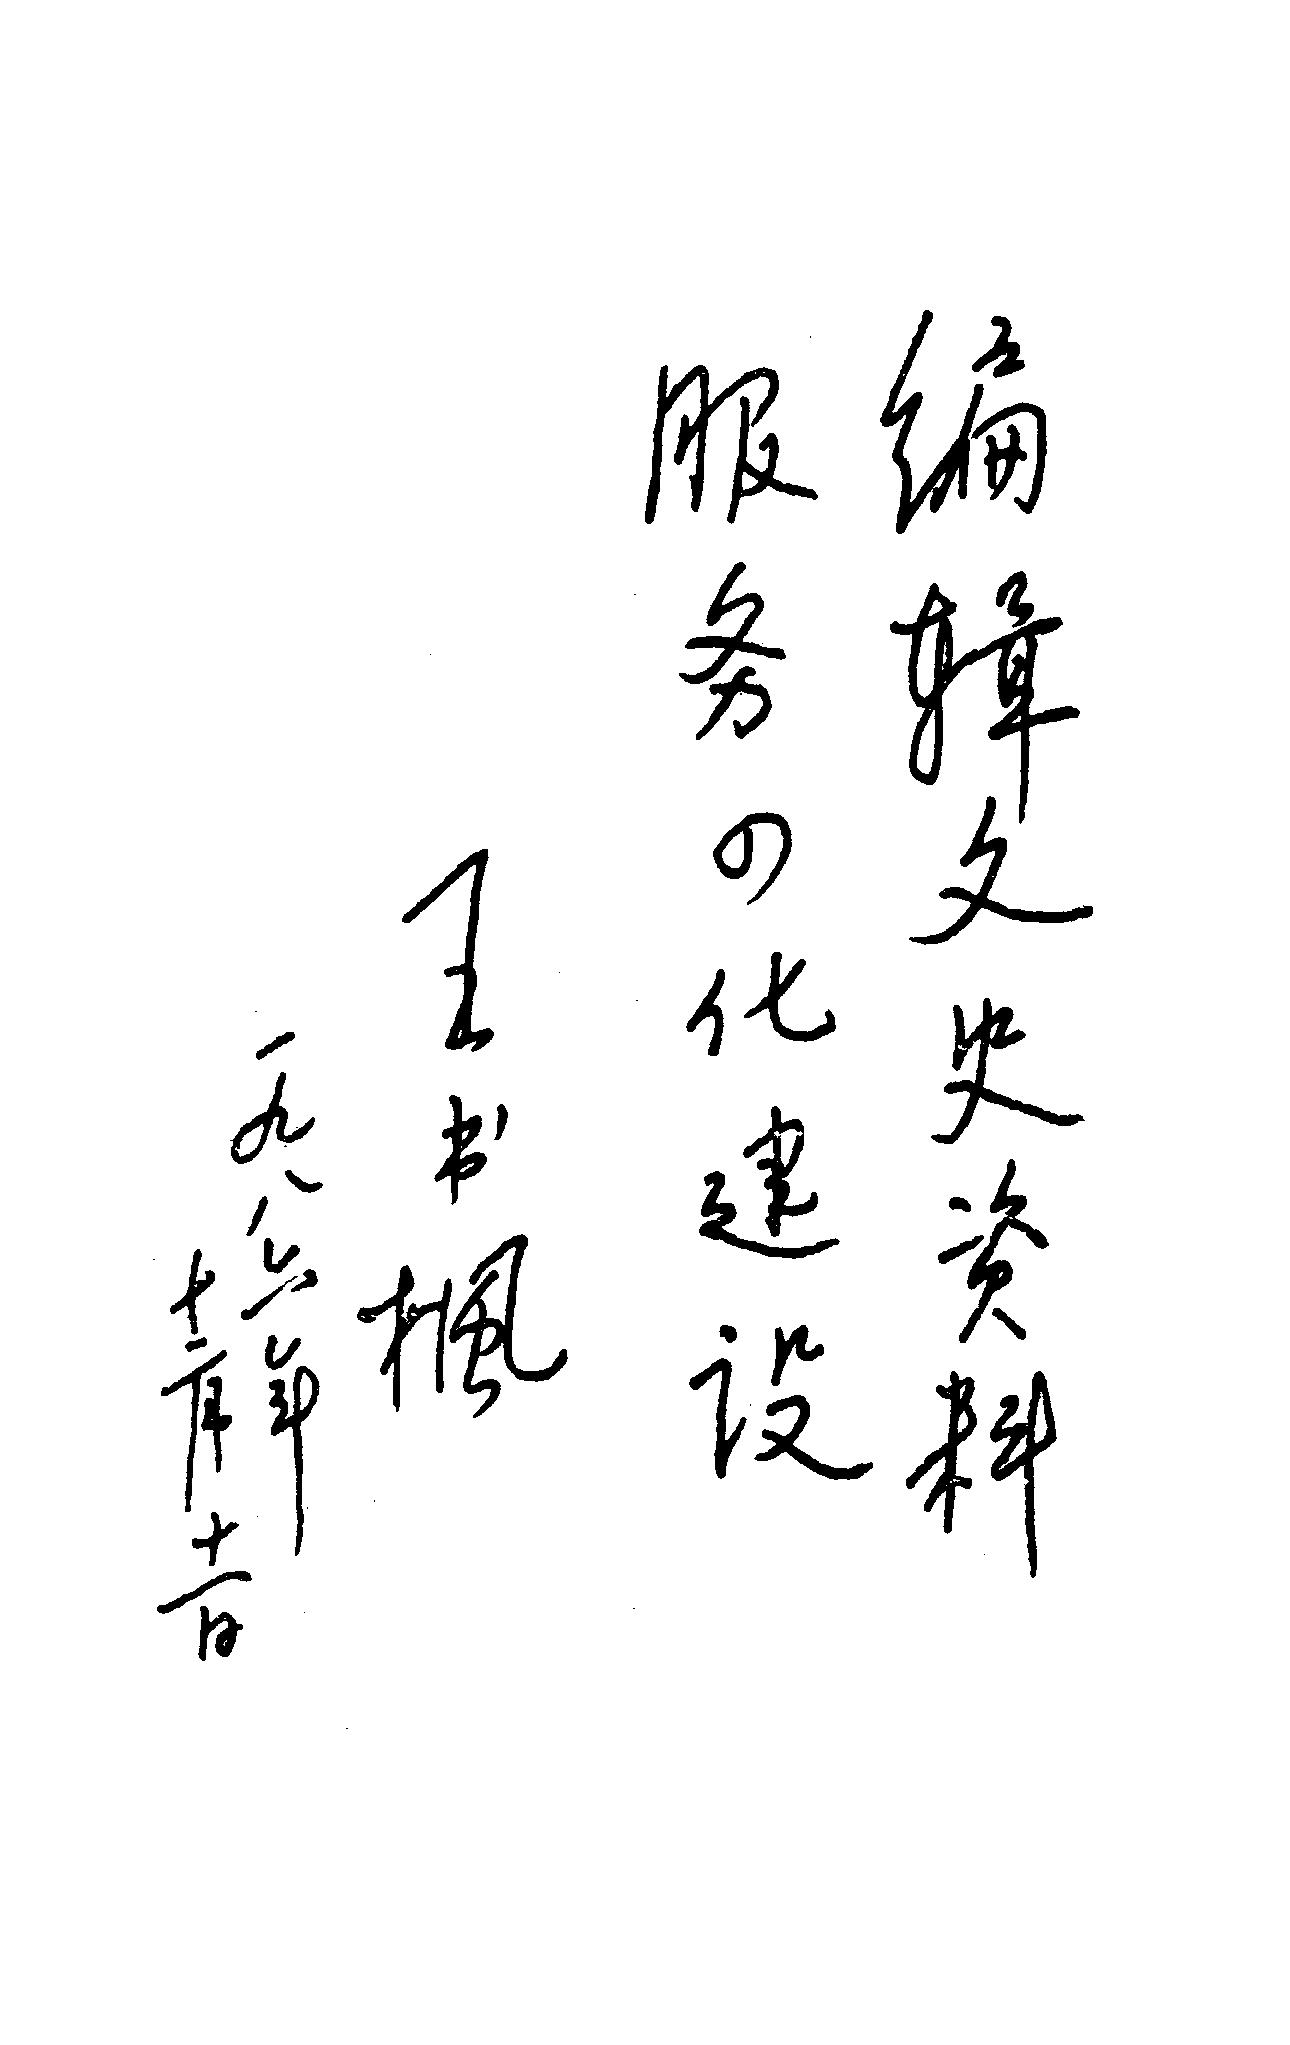 编辑文史资料
服务四化建设
王书枫
一九八六年
十二月十一日